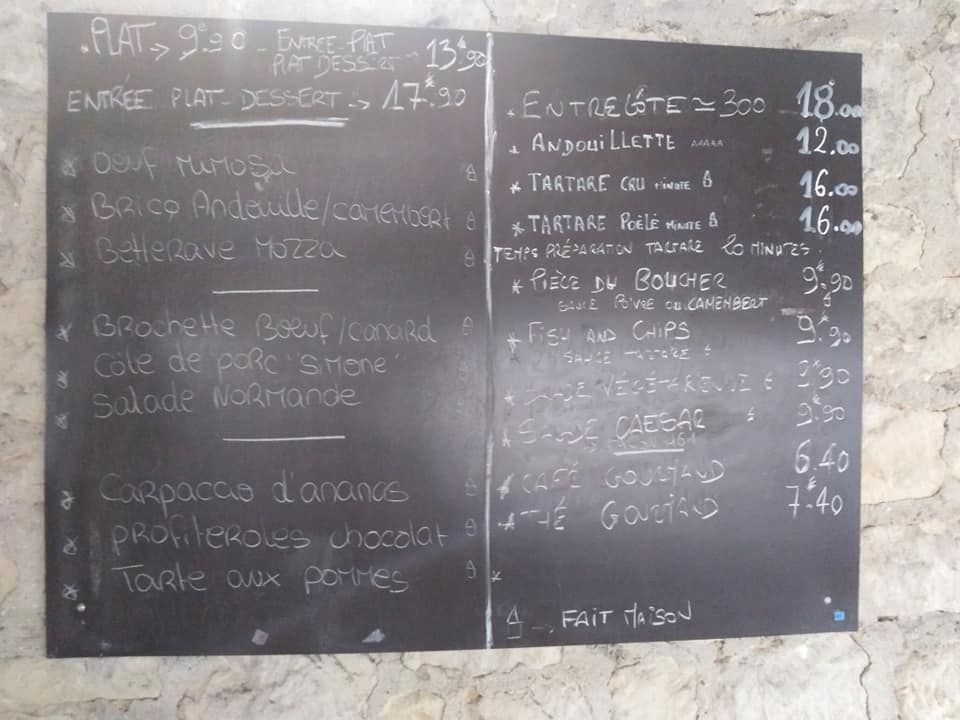 .PLAT → 9€90 - ENTRÉE-PLAT
PLAT DESSERT → 13€90
ENTRÉE PLAT-DESSERT → 17€90
* Oeuf Mimosa
* Brick Andouille/camembert
* Betterave Mozza
* Brochette Bœuf/canard
* Côte de porc "Simone"
* Salade Normande
* Carpaccio d'ananas
* Profiteroles chocolat
* Tarte aux pommes
* ENTRECÔTE ≃ 300 18.00
* ANDOUILLETTE AAAAA 12.00
* TARTARE CRU MINUTE 16.00
* TARTARE POÊLÉ MINUTE 16.00
TEMPS PRÉPARATION TARTARE 20 MINUTES
* PIÈCE DU BOUCHER 9€90
SAUCE POIVRE OU CAMEMBERT
* FISH AND CHIPS 9€90
SAUCE TARTARE
* SALADE VÉGÉTARIENNE 9€90
* SALADE CAESAR 9€90
* CAFÉ GOURMAND 6.40
* THÉ GOURMAND 7€40
*
→ FAIT MAISON